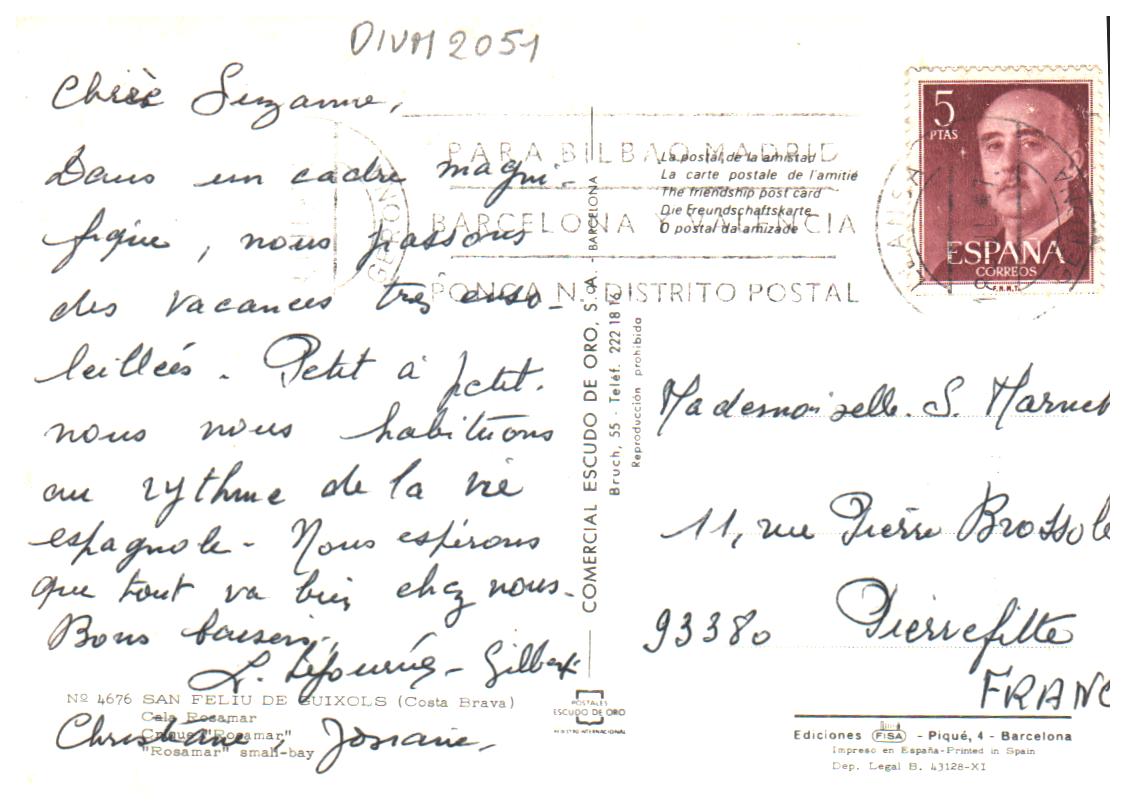 DIVM 2051
Chère Suzanne,
Dans un cadre magni-
fique, nous passons
des vacances très enso-
leillées. Petit à petit.
nous nous habituons
au rythme de la vie
espagnole - Nous espérons
que tout va bien chez nous.
Bons baisers,
Gilbert
Christiane, Josiane,
Nº 4676 SAN FELIU DE GUIXOLS (Costa Brava)
Cala Rosamar
Crique "Rosamar"
"Rosamar" small-bay
PARA BILBAO MADRID
BARCELONA Y VALENCIA
PONGA N.º DISTRITO POSTAL
GERONA
La postal de la amistad
La carte postale de l'amitié
The friendship post card
Die Freundschaftskarte
O postal da amizade
COMERCIAL ESCUDO DE ORO, S.A. - BARCELONA
Bruch, 55 - Teléf. 222 18 16
Reproducción prohibida
POSTALES
ESCUDO DE ORO
REGISTRO INTERNACIONAL
5
PTAS
ESPAÑA
CORREOS
F.N.M.T.
GERONA
Mademoiselle. S. Marnet
11, rue Pierre Brossole
93380 Pierrefitte
FRANC
Ediciones FISA - Piqué, 4 - Barcelona
Impreso en España-Printed in Spain
Dep. Legal B. 43128-XI